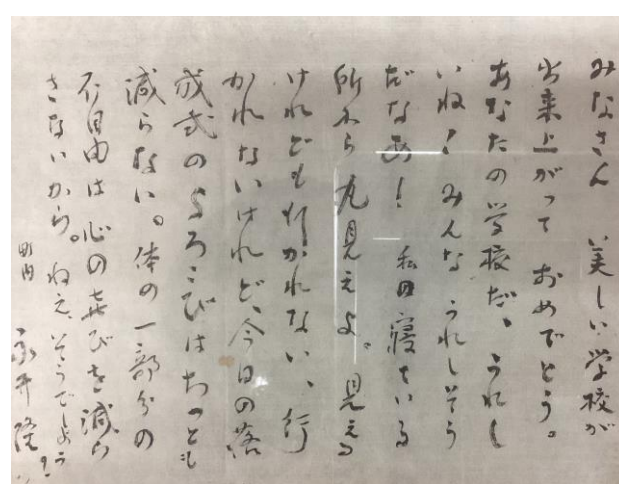 みなさん　美しい学校が
出来上がって　おめでとう。
あなたの学校だ、うれし
いね！　みんな　うれしそう
だなあ！　私の寝ている
所から丸見えよ。見える
けれども行かれない、行
かれないけれど、今日の落
成式のよろこびはちっとも
減らない。体の一部分の
不自由は心の喜びを減ら
さないから。ねえ　そうでしょう？
町内　永井隆